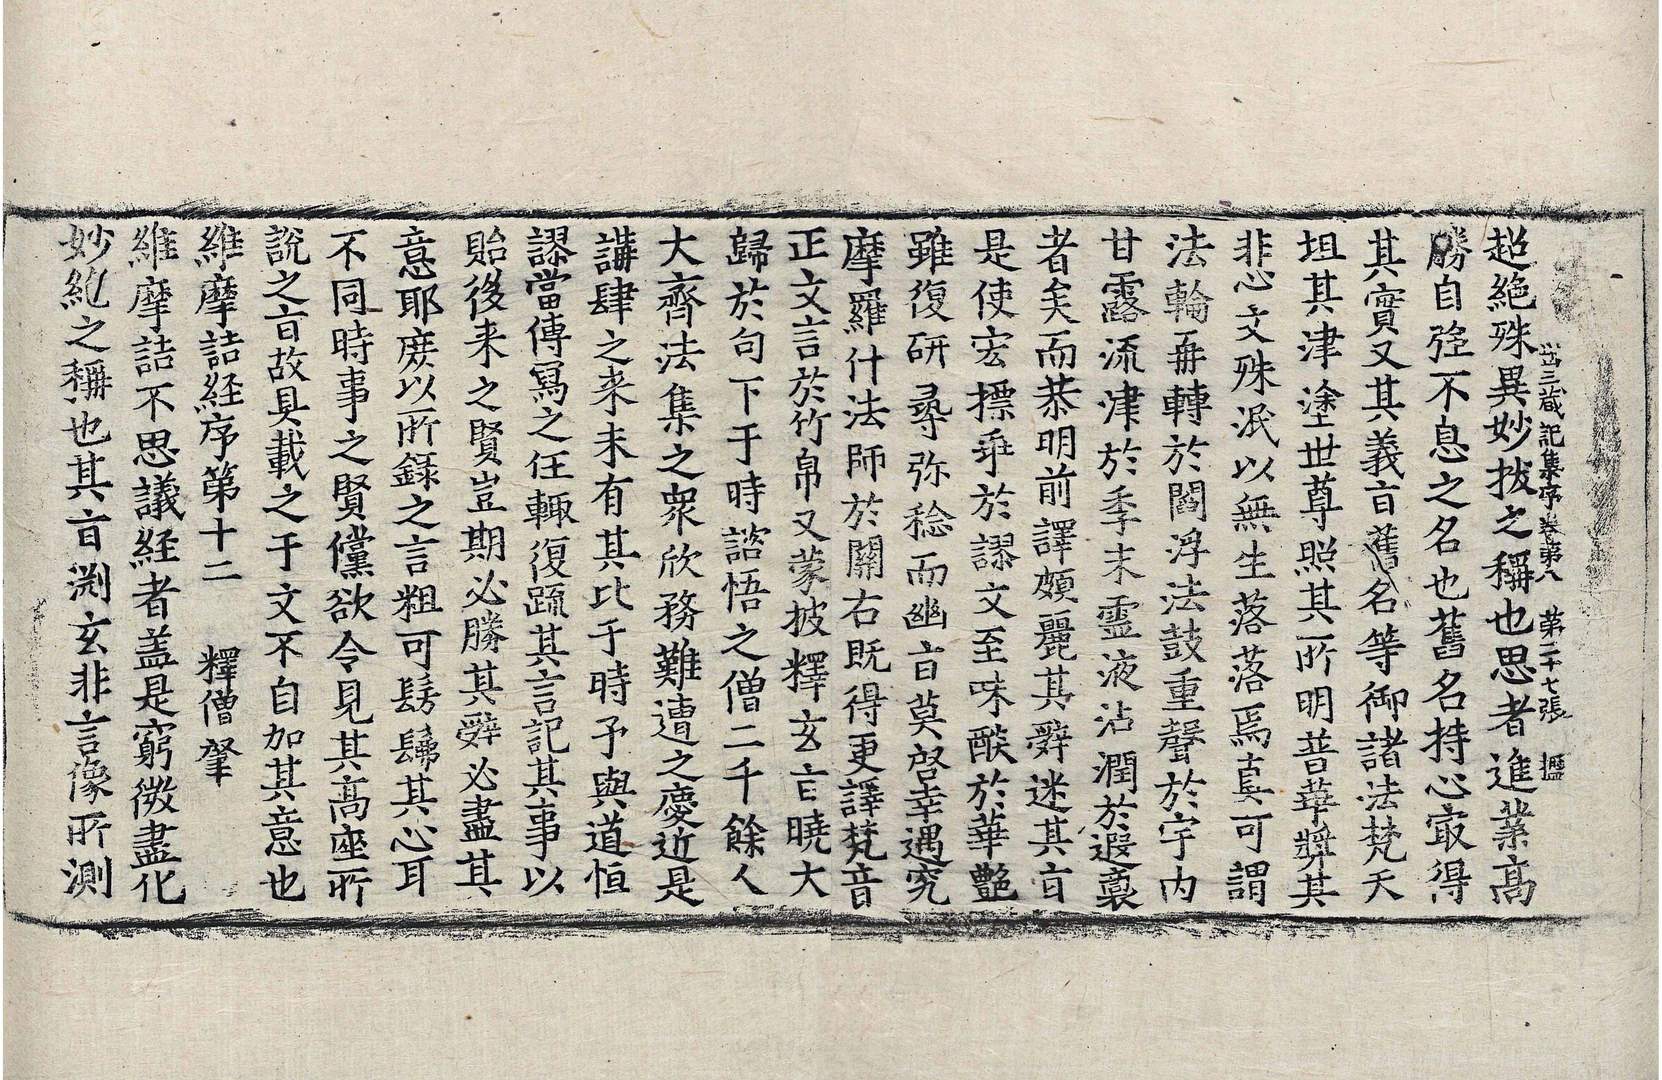 出三藏記集序卷第八　第二十七張　𭣣
超絶殊異妙拔之稱也思者進業高
勝自強不息之名也舊名持心㝡得
其實又其義㫖舊名等御諸法梵天
坦其津塗世尊照其所明普華奬其
悲心文殊泯以無生落落焉真可謂
法輪再轉於閻浮法鼓重聲於宇内
甘露流津於季末靈液沾潤於遐裔
者矣而恭明前譯頗麗其辭迷其㫖
是使宏摽乖於謬文至味醨於華艶
雖復研尋弥稔而幽㫖莫啓幸遇究
摩羅什法師於關右既得更譯梵音
正文言於竹帛又蒙披釋玄㫖曉大
歸於句下于時諮悟之僧二千餘人
大齊法集之衆欣務難遭之慶近是
講肆之来未有其比于時予與道恒
謬當傳寫之任輙復疏其言記其事以
貽後来之賢豈期必勝其辭必盡其
意耶庶以所錄之言粗可髣髴其心耳
不同時事之賢儻欲令見其高座所
說之㫖故具載之于文不自加其意也
維摩詰経序第十二　釋僧肇
維摩詰不思議経者盖是窮微盡化
妙絶之稱也其㫖渕玄非言像所測